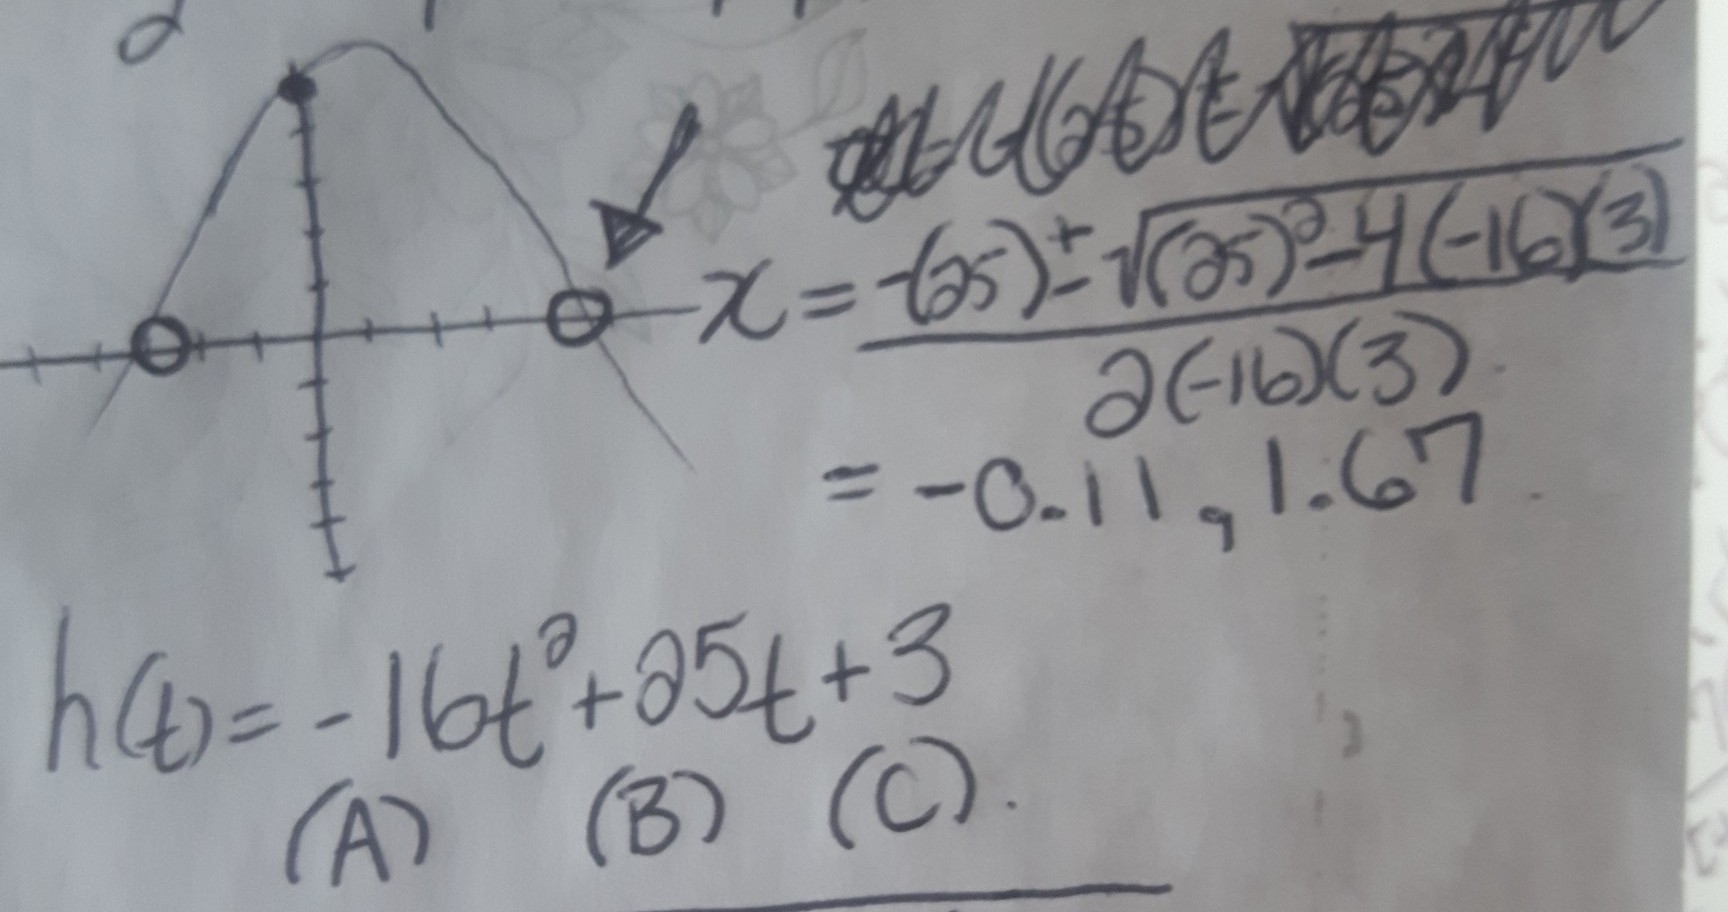 x = -(25) ± √(25)² - 4(-16)(3)
2(-16)(3)
= -0.11, 1.67
h(t) = -16t² + 25t + 3
(A) (B) (C).